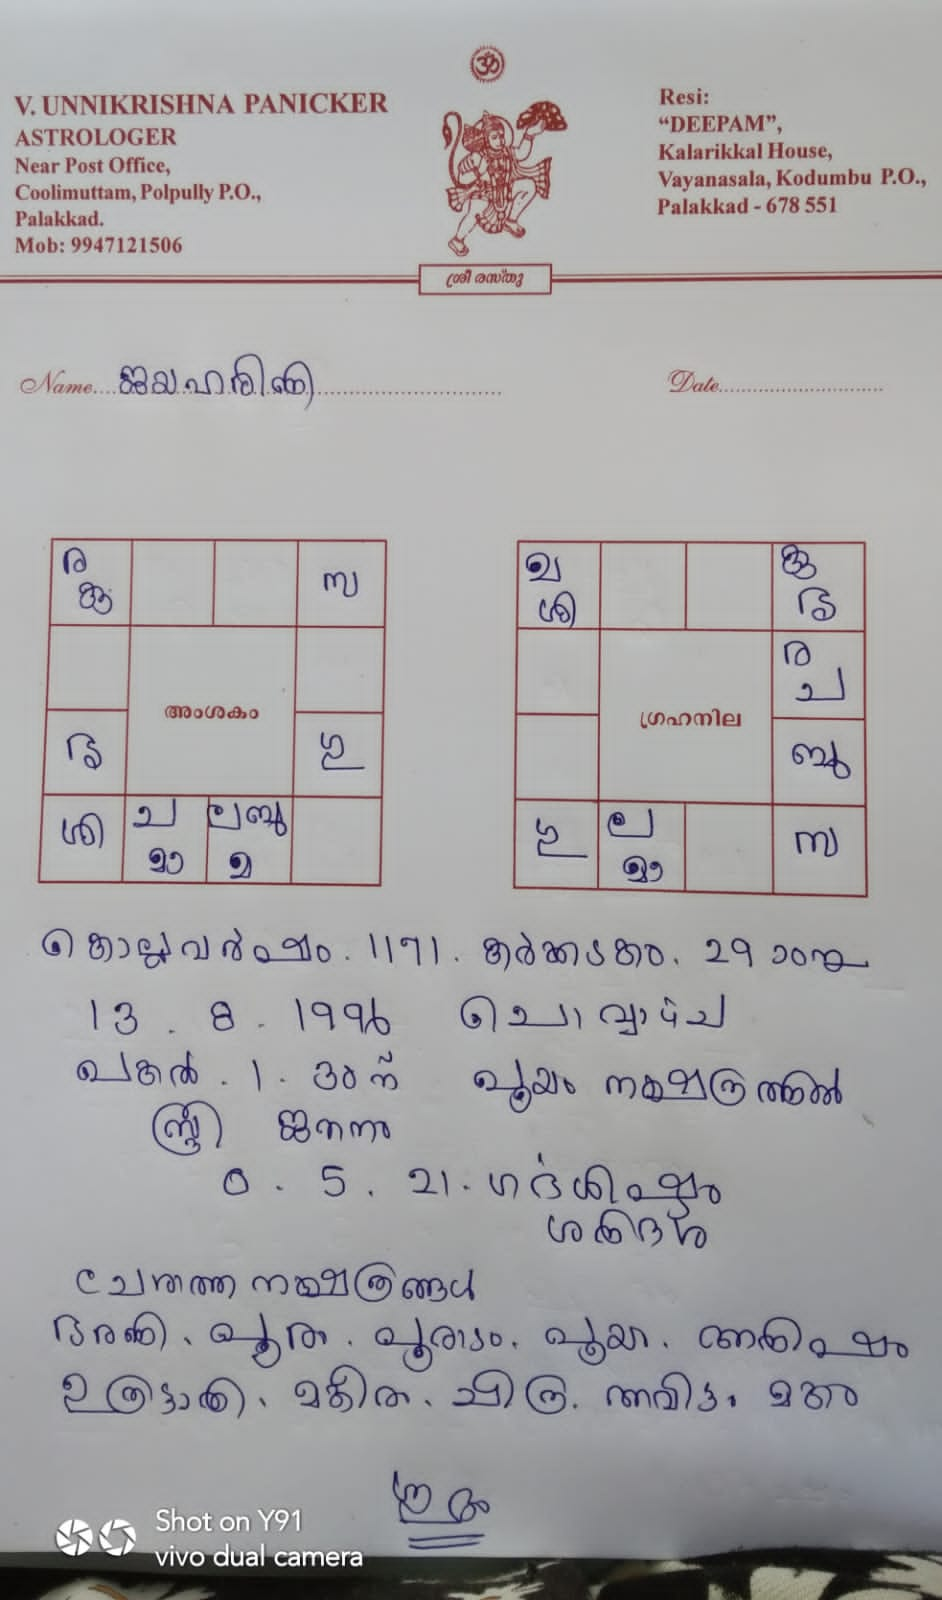 ॐ
V. UNNIKRISHNA PANICKER
ASTROLOGER
Near Post Office,
Coolimuttam, Polpully P.O.,
Palakkad.
Mob: 9947121506
Resi:
“DEEPAM”,
Kalarikkal House,
Vayanasala, Kodumbu P.O.,
Palakkad - 678 551
ശ്രീ രസ്തു
Name.... ജയഹരിണി
Date
ര
കു
സ
അംശകം
ഗു
ശി
ച ലബു
മാ
ശി
ര
ച
ഗ്രഹനില
ബു
ഗു ല സ
മാ
കൊല്ലവർഷം . 1171 . കർക്കടകം . 29
13 . 8 . 1996 ചൊവ്വാഴ്ച
പകൽ . 1 . 30 ന് പൂയം നക്ഷത്രത്തിൽ
സ്ത്രീ ജനനം
0 . 5 . 21 .
ശനിദശ
ചേരാത്ത നക്ഷത്രങ്ങൾ
ഭരണി . പൂരം . പൂരാടം . പൂയം . അനിഴം
ഉത്രട്ടാതി . മകീര്യം . ചിത്ര . അവിട്ടം . മകം
ശുഭം
Shot on Y91
vivo dual camera